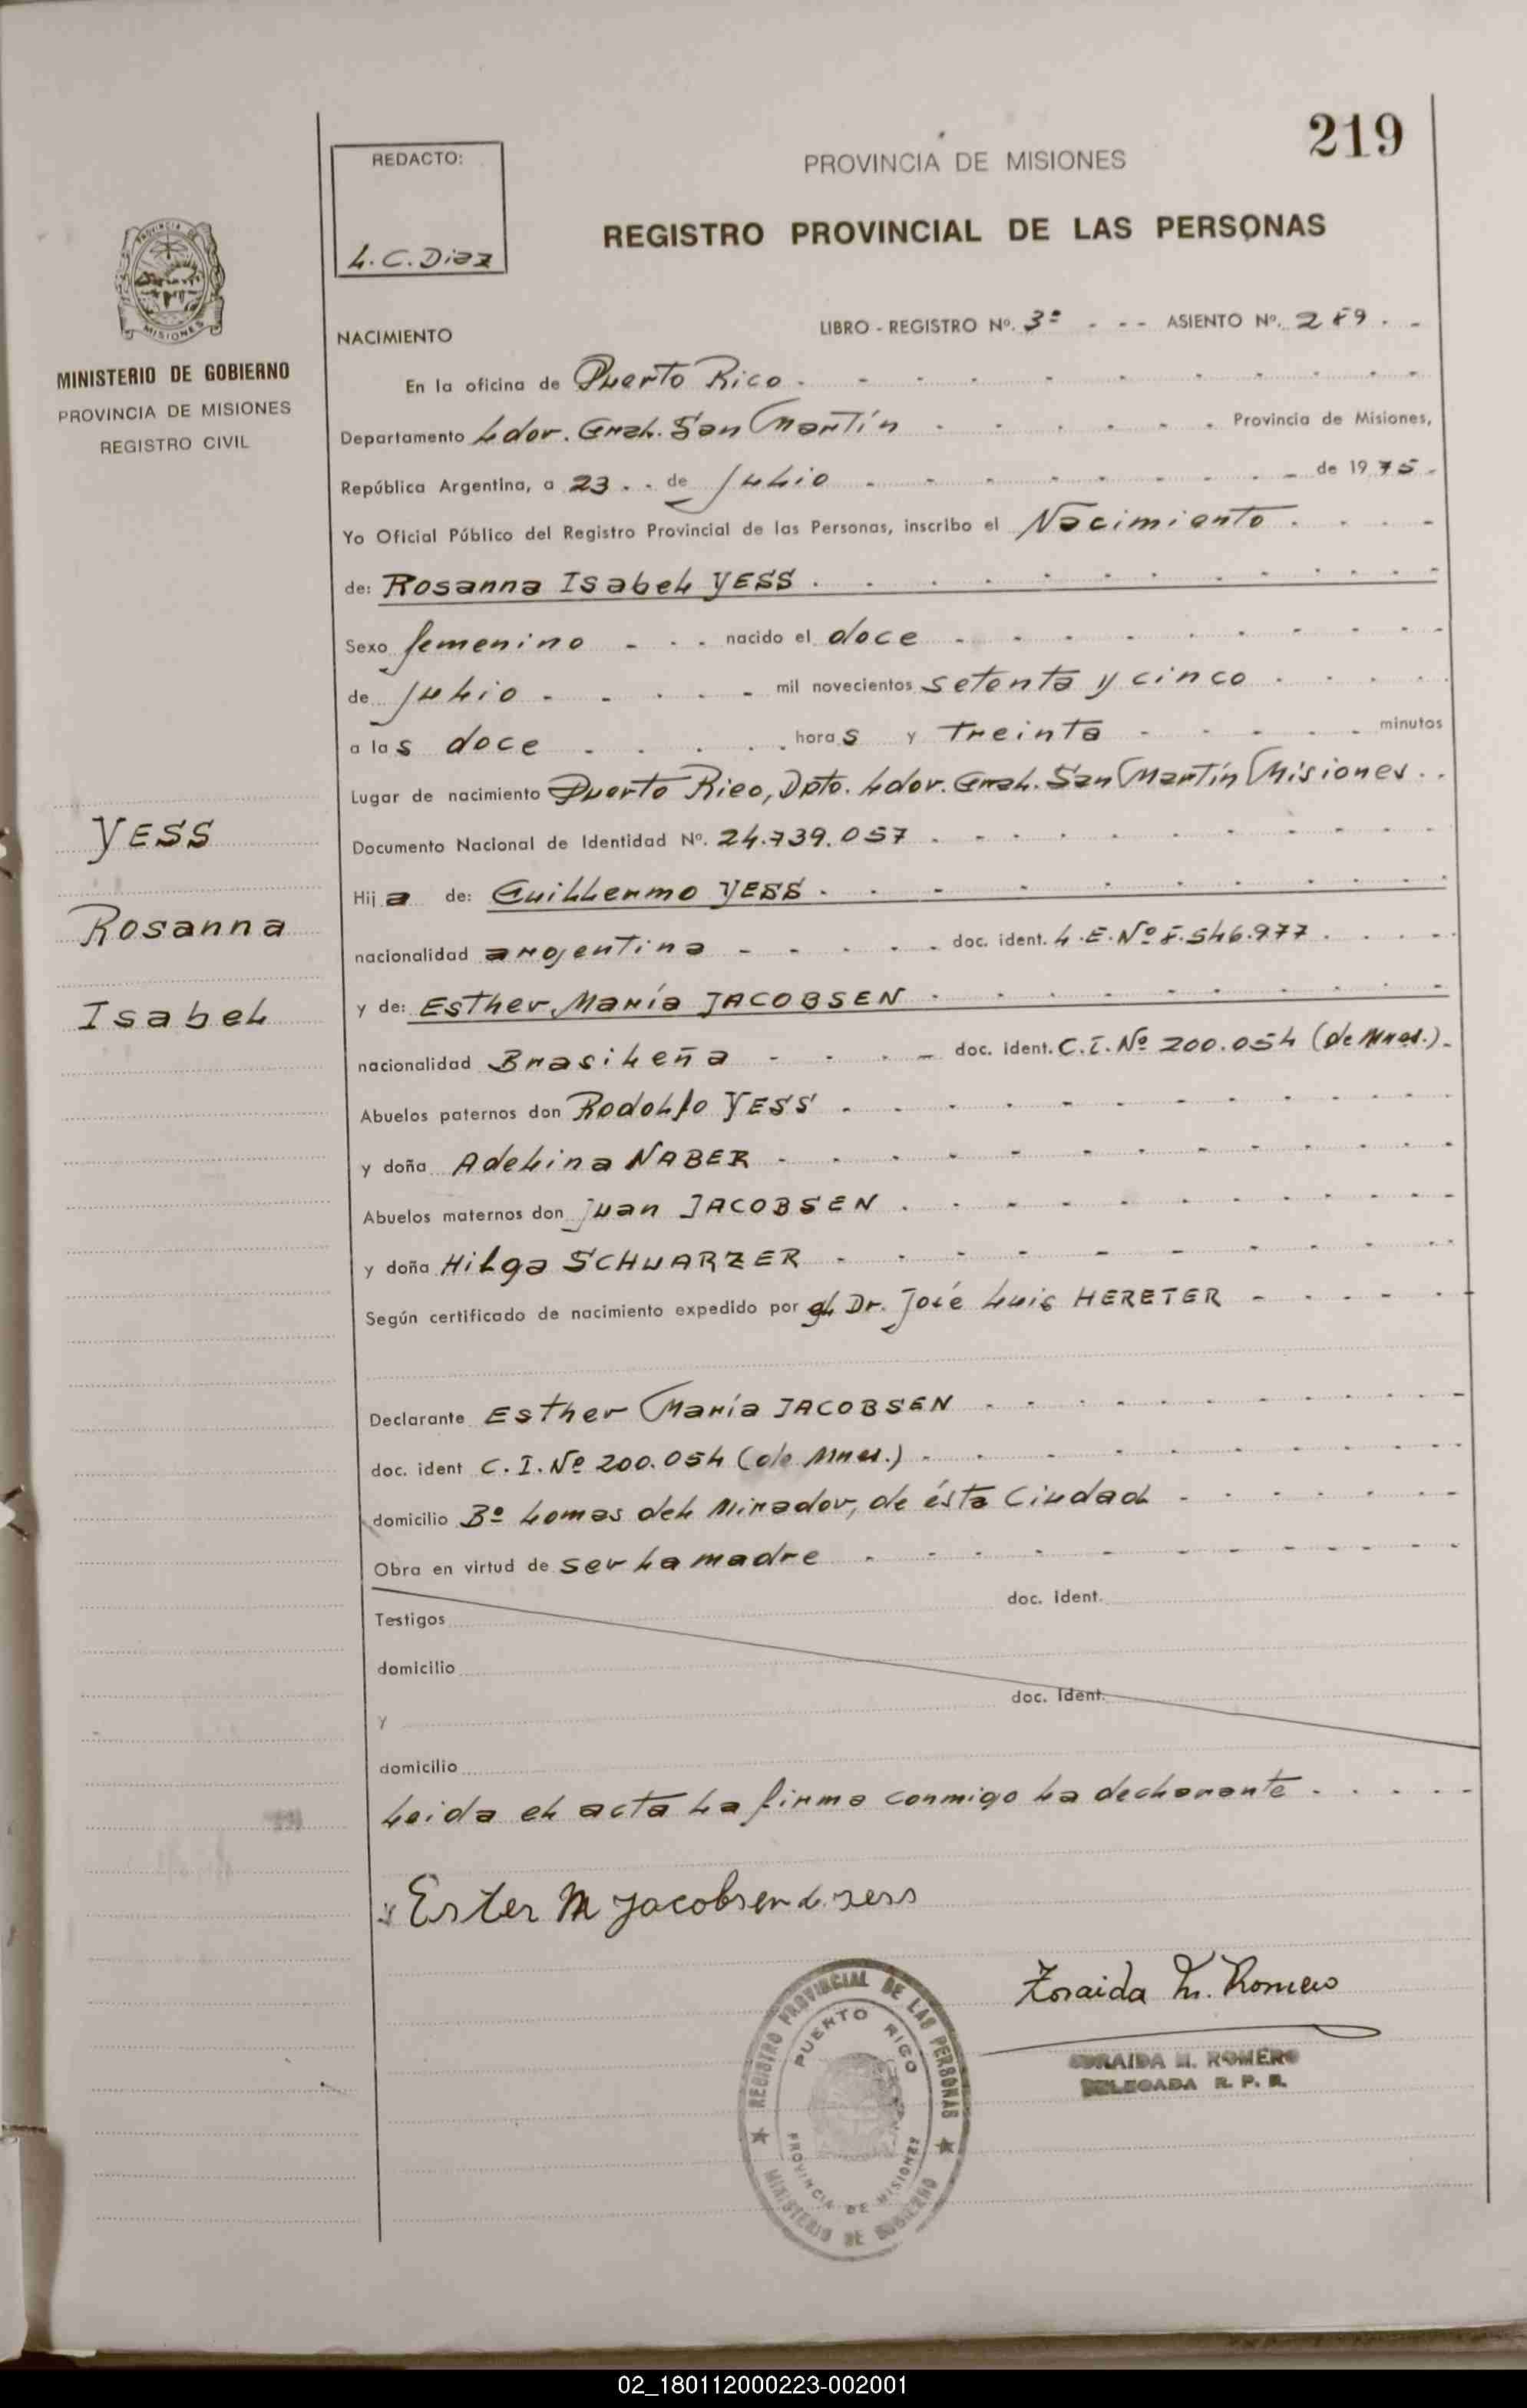 219
REDACTO:
L. C. Diaz
PROVINCIA DE MISIONES
REGISTRO PROVINCIAL DE LAS PERSONAS
PROVINCIA DE MISIONES
MINISTERIO DE GOBIERNO
PROVINCIA DE MISIONES
REGISTRO CIVIL
NACIMIENTO
LIBRO - REGISTRO Nº. 3º - - - ASIENTO Nº. 289 . -
En la oficina de Puerto Rico
Departamento Ldor. Gral. San Martín Provincia de Misiones,
República Argentina, a 23 . - de Julio de 1975 -
Yo Oficial Público del Registro Provincial de las Personas, inscribo el Nacimiento
de: Rosanna Isabel YESS
Sexo femenino nacido el doce
de Julio mil novecientos setenta y cinco
a las doce horas y treinta minutos
Lugar de nacimiento Puerto Rico, Dpto. Ldor. Gral. San Martín Misiones
YESS
Documento Nacional de Identidad Nº. 24.739.057
Hija de: Guillermo YESS
Rosanna
nacionalidad argentina doc. ident. L.E. Nº 8.546.977
y de: Esther María JACOBSEN
Isabel
nacionalidad Brasileña doc. ident. C.I. Nº 200.054 (de Mnes.)
Abuelos paternos don Rodolfo YESS
y doña Adelina NABER
Abuelos maternos don Juan JACOBSEN
y doña Hilga SCHWARZER
Según certificado de nacimiento expedido por el Dr. José Luis HERETER
Declarante Esther María JACOBSEN
doc. ident C. I. Nº 200.054 (de Mnes.)
domicilio Bº Lomas del Mirador, de ésta Ciudad
Obra en virtud de ser la madre
Testigos doc. ident.
domicilio
y doc. Ident.
domicilio
Leida el acta la firma conmigo la declarante
Ester M Jacobsen d. Yess
Zoraida M. Romero
ZORAIDA M. ROMERO
DELEGADA R. P. P.
REGISTRO PROVINCIAL DE LAS PERSONAS
PUERTO RICO
PROVINCIA DE MISIONES
MINISTERIO DE GOBIERNO
02_180112000223-002001